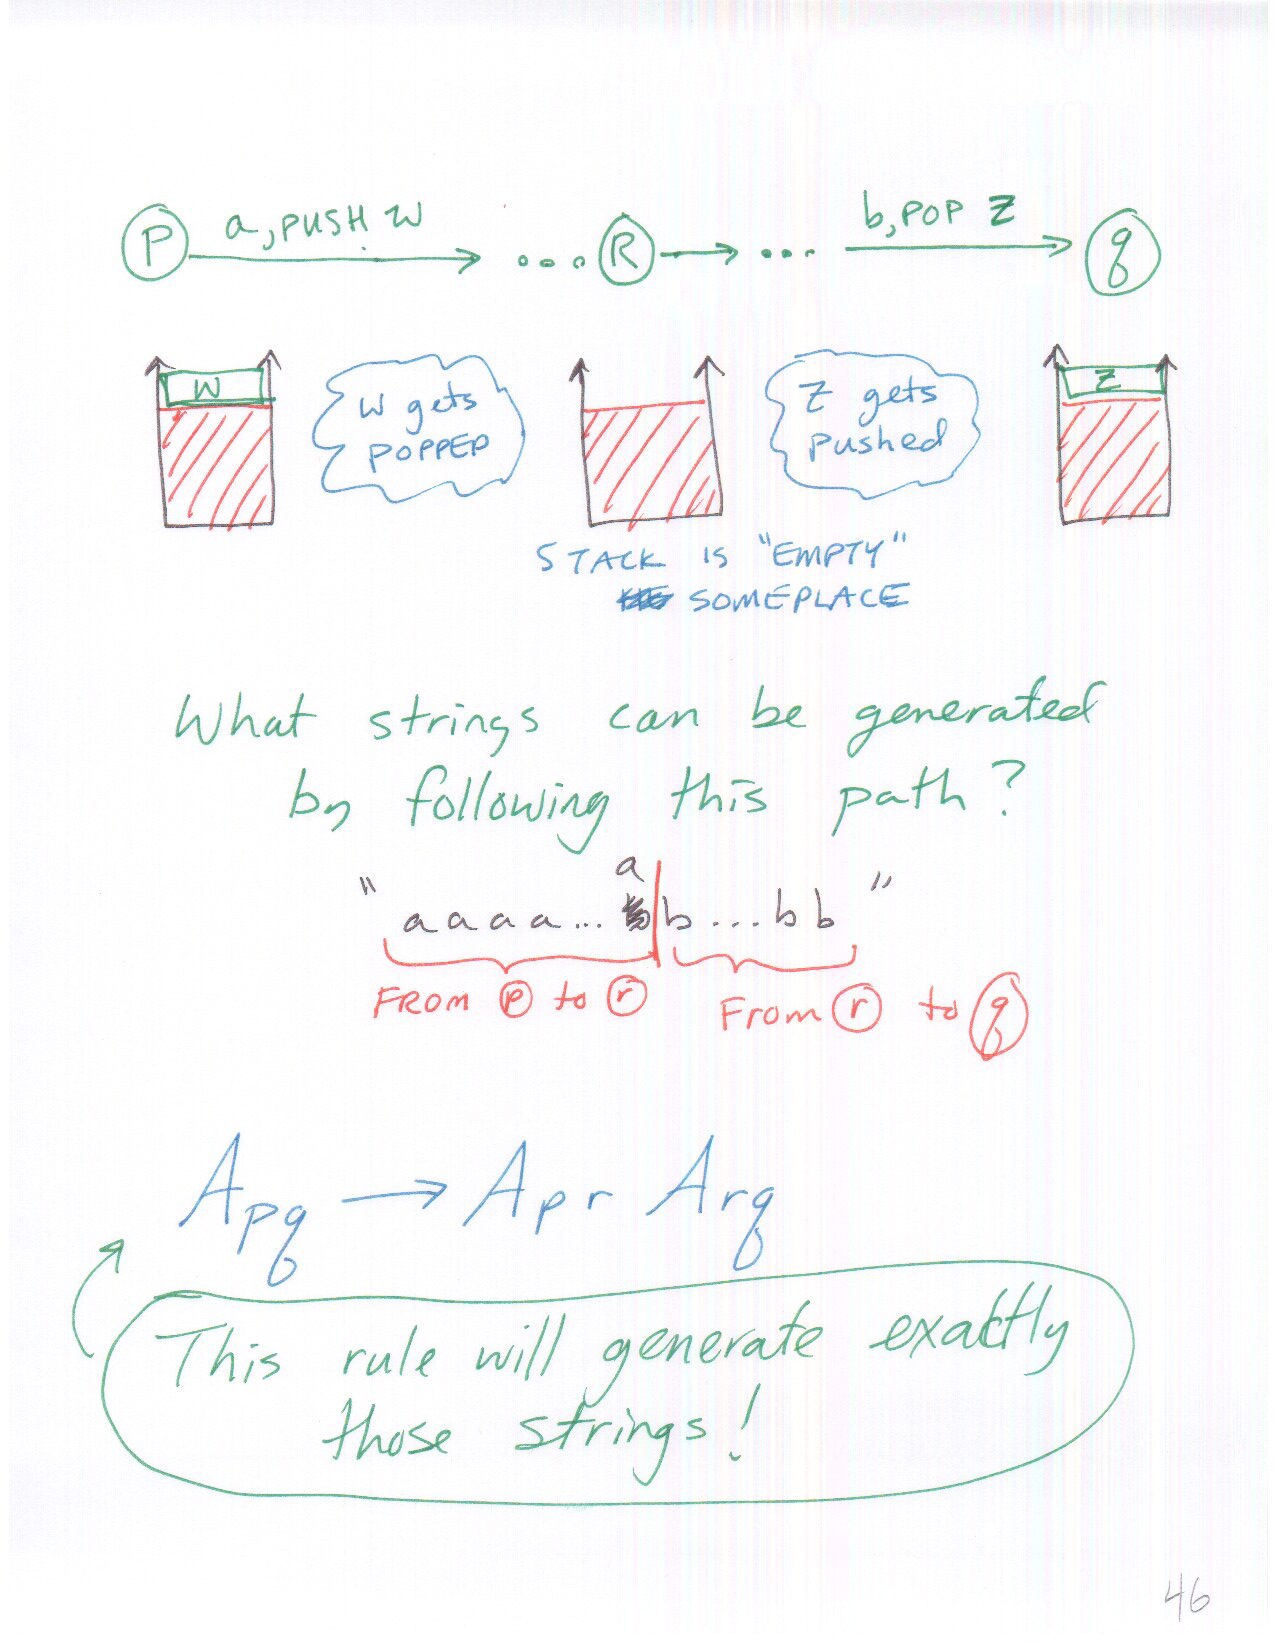 P a, PUSH W ... R ... b, POP Z q
W W gets POPPED Z gets pushed Z
STACK IS "EMPTY"
SOMEPLACE
What strings can be generated
by following this path?
a
" a a a a ... b ... b b "
FROM p to r From r to q
Apq → Apr Arq
This rule will generate exactly
those strings!
46